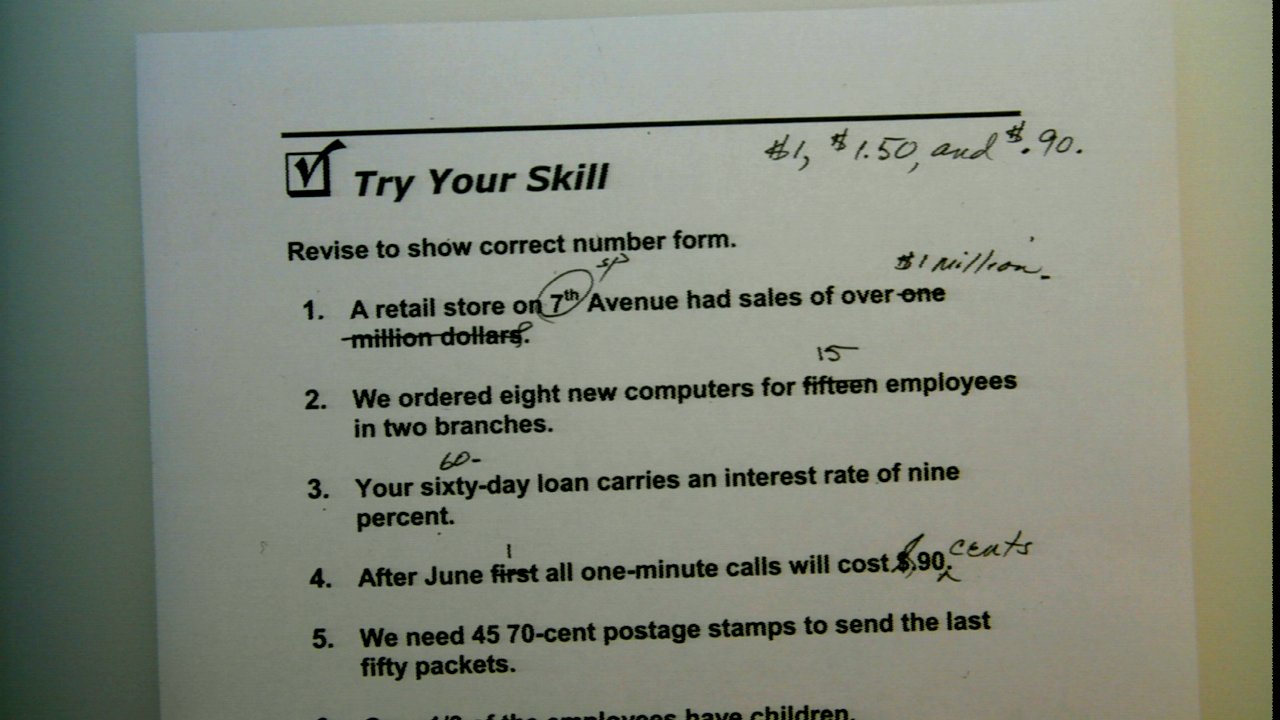 $1, $1.50, and $.90.
Try Your Skill
Revise to show correct number form.
sp
$1 Million.
1. A retail store on 7th Avenue had sales of over one
million dollars.
15
2. We ordered eight new computers for fifteen employees
in two branches.
60-
3. Your sixty-day loan carries an interest rate of nine
percent.
1
cents
4. After June first all one-minute calls will cost $.90.
5. We need 45 70-cent postage stamps to send the last
fifty packets.
of the employees have children.